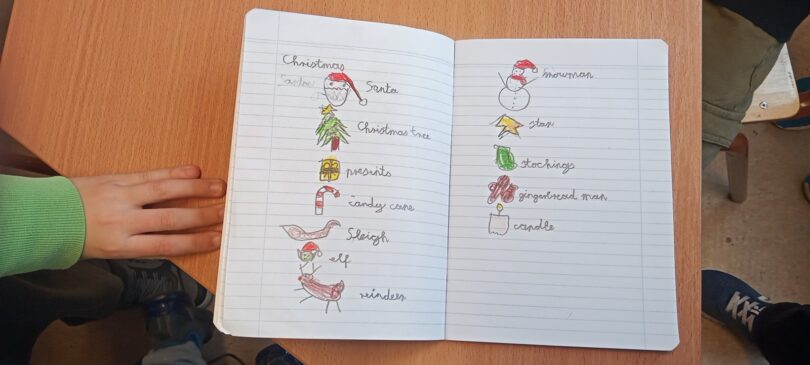 Christmas
Santa
Christmas tree
presents
candy cane
Sleigh
elf
reindeer
Snowman
star
stockings
gingerbread man
candle